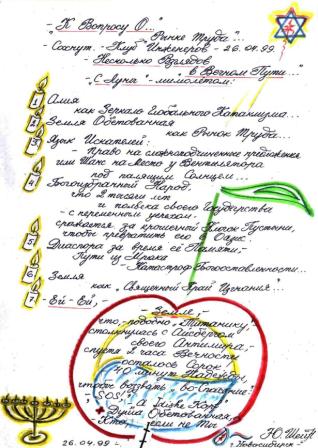 - К Вопросу О..."
"Рынке Труда"...
- Сохнут. - Клуб Инженеров - 26.04.99.
- Несколько Взглядов
"в Вечном Пути..."
"С Луны" - мимолетом:
1 Алия
как Зеркало Глобального Катаклизма...
2 Земля Обетованная
как Рынок Труда...
3 Язык Искателей:
- Право на сложноподчиненное предложение
или Шанс на Место у Вентилятора
под палящим Солнцем...
4 Богоизбранный Народ,
что 2 тысячи лет
и полвека своего Государства
- с переменным успехом -
сражается за крошечный Клочок Пустыни,
чтобы превратить его в Оазис.
5 Диаспора за время её Памяти,-
Пути из Мрака
Катастроф Богооставленности...
6 Земля
как "Священный Грааль Изгнания"...
7 - Ей - Ей,-
Земле,-
что, подобно "Титанику",
столкнулась с Айсбергом
своего Антимира,
спустя 2 часа Вечности
осталось Сорок
40 минут Надежды,
чтобы воззвать "Во Спасение":
- "SOS!"
Душа Обетованная,-
Кто, если не Ты
26.04.99 г.
Ю. Шейф
г. Новосибирск -